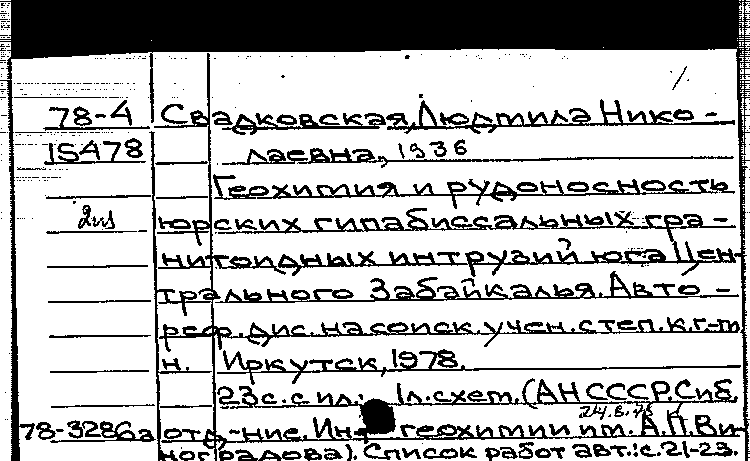 78-4 Свадковская, Людмила Нико-
15478 лаевна, 1936
Геохимия и рудоносность
2из юрских гипабиссальных гра-
нитоидных интрузий юга Цен-
трального Забайкалья. Авто-
реф. дис. на соиск. учен. степ. к.г-м
н. Иркутск, 1978.
23с. с ил.; 1л. схем. (АН СССР. Сиб.
78-3286а отд-ние. Ин-т геохимии им. А.П. Ви-
ноградова). Список работ авт.: с. 21-23.